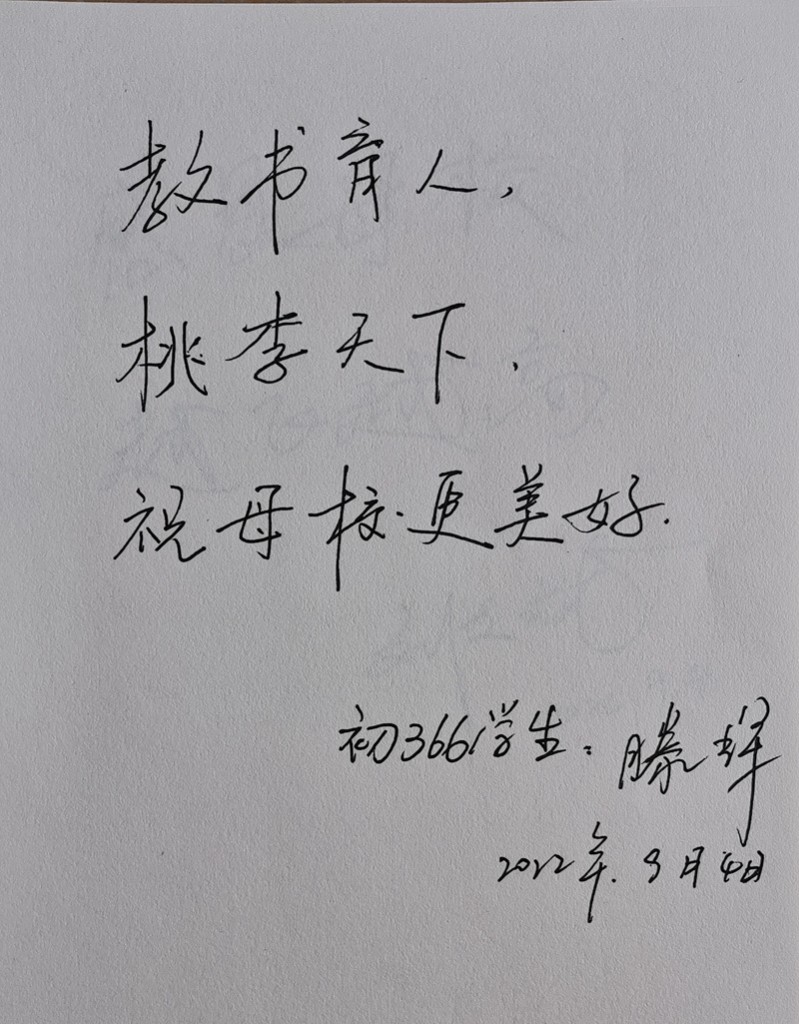 教书育人，
桃李天下.
祝母校更美好.
初366学生：滕
2022年.9月4日